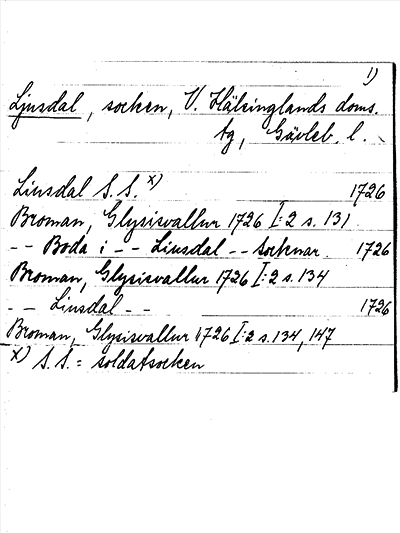 1)
Ljusdal, socken, V. Hälsinglands doms.
tg, Gävleb. l.
Liusdal S.S. x) 1726
Broman, Glysisvallur 1726 I:2 s. 131
-- Boda i -- Liusdal -- Socknar. 1726
Broman, Glysisvallur 1726 I:2 s. 134
-- Liusdal -- 1726
Broman, Glysisvallur 1726 I:2 s. 134, 147
x) S.S. = soldatsocken